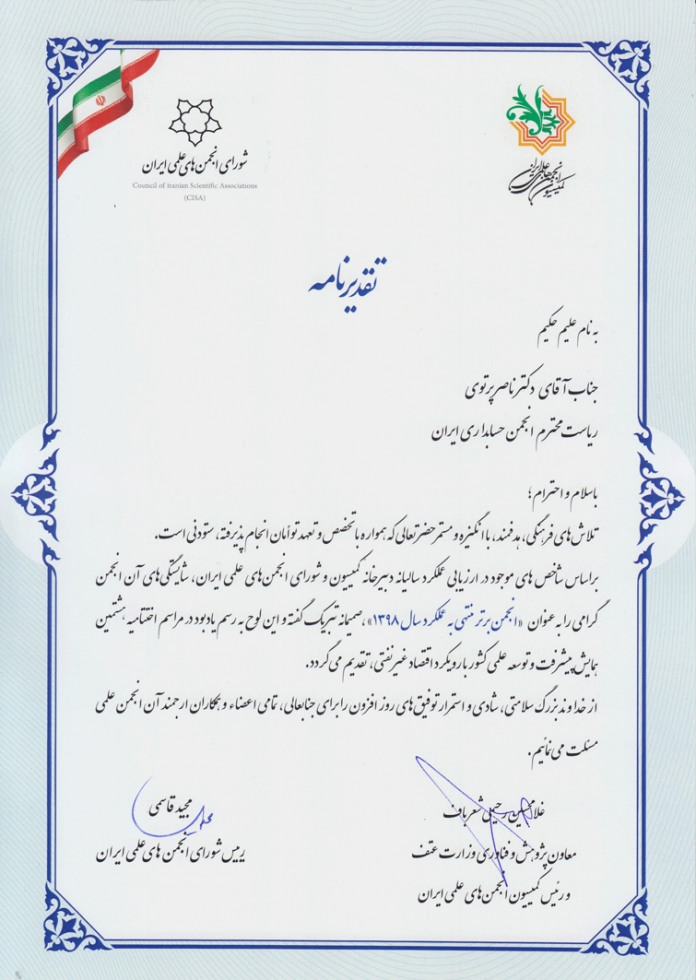 شورای انجمن های علمی ایران
Council of Iranian Scientific Associations
(CISA)
کمیسیون انجمن‌های علمی ایران
تقدیرنامه
به نام علیم حکیم
جناب آقای دکتر ناصر پرتوی
ریاست محترم انجمن حسابداری ایران
باسلام و احترام؛
تلاش های فرهنگی، هدفمند، با انگیزه و مستمر حضرتعالی که همواره با تخصص و تعهد توأمان انجام پذیرفته، ستودنی است.
براساس شاخص های موجود در ارزیابی عملکرد سالیانه دبیرخانه کمیسیون و شورای انجمن‌های علمی ایران، شایستگی‌های آن انجمن
گرامی را به عنوان «انجمن برتر منتهی به عملکرد سال ۱۳۹۸»، صمیمانه تبریک گفته و این لوح به رسم یادبود در مراسم اختتامیه هشتمین
همایش پیشرفت و توسعه علمی کشور با رویکرد اقتصاد غیرنفتی، تقدیم می‌گردد.
از خداوند بزرگ سلامتی، شادی و استمرار توفیق‌های روز افزون را برای جنابعالی، تمامی اعضاء و همکاران ارجمند آن انجمن علمی
مسئلت می‌نمائیم.
غلامحسین رحیمی شعرباف
معاون پژوهش و فناوری وزارت عتف
و رئیس کمیسیون انجمن‌های علمی ایران
مجید قاسمی
رییس شورای انجمن های علمی ایران